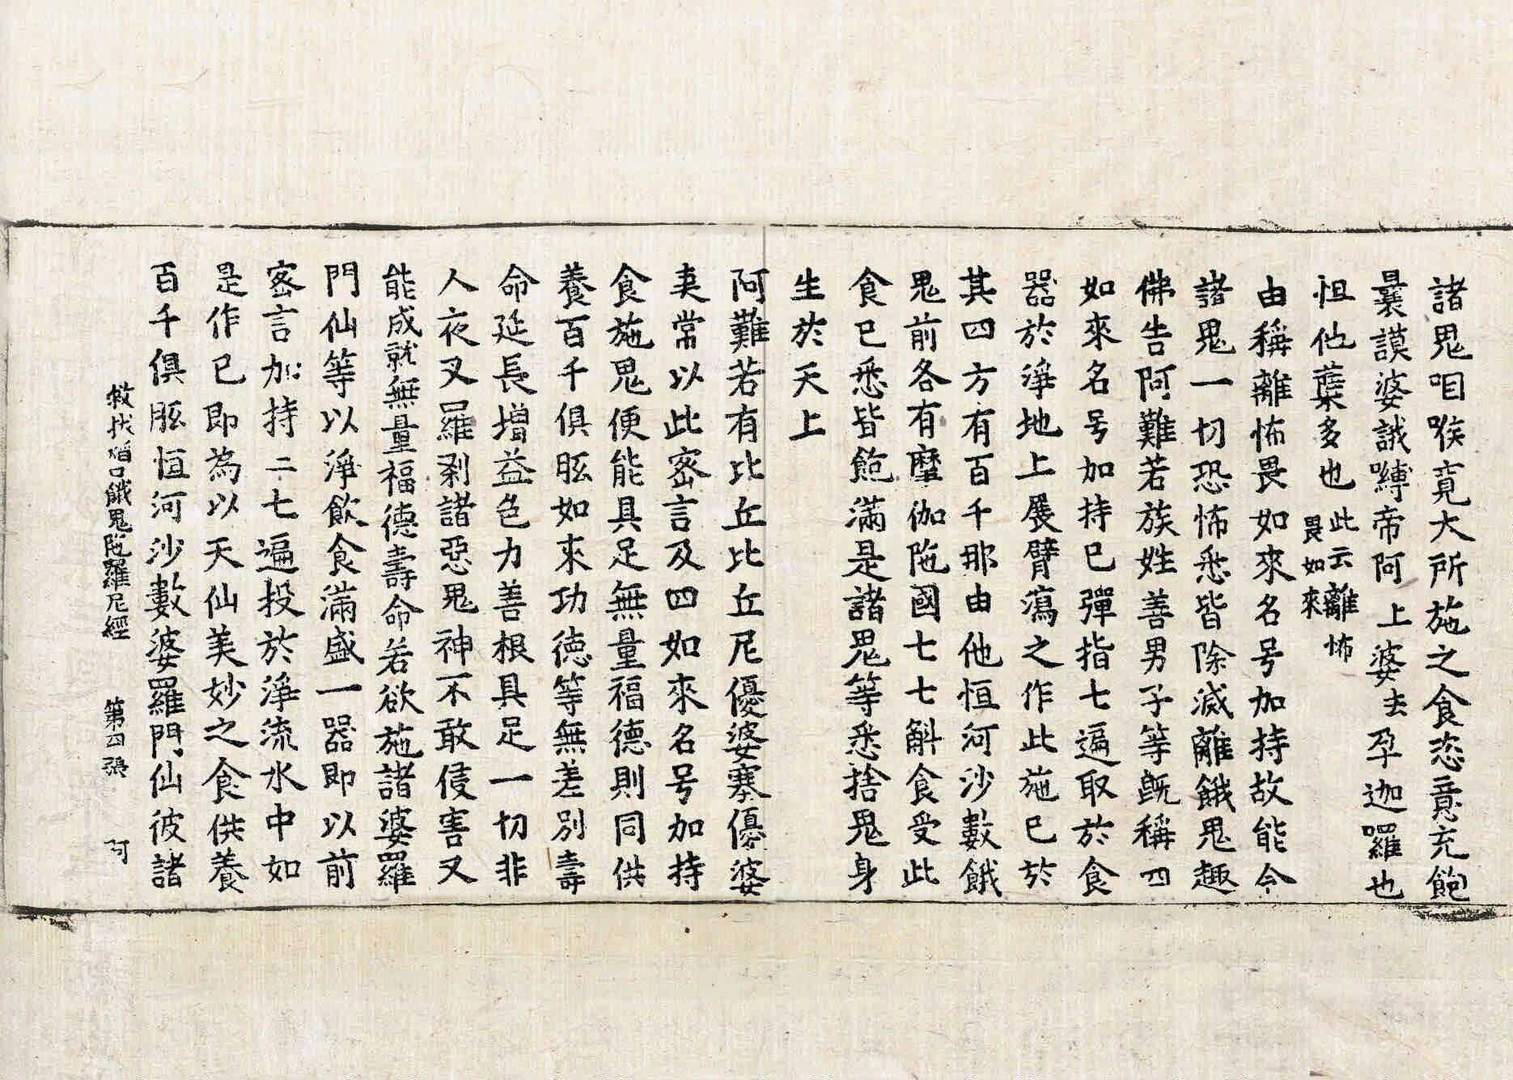 諸鬼咽喉寛大所施之食恣意充飽
曩謨婆誐嚩帝阿上婆去孕迦囉也
怛他蘖多也此云離怖畏如來
由稱離怖畏如來名号加持故能令
諸鬼一切恐怖悉皆除滅離餓鬼趣
佛告阿難若族姓善男子等旣稱四
如來名号加持已彈指七遍取於食
器於淨地上展臂瀉之作此施已於
其四方有百千那由他恒河沙數餓
鬼前各有摩伽陁國七七斛食受此
食已悉皆飽滿是諸鬼等悉捨鬼身
生於天上
阿難若有比丘比丘尼優婆塞優婆
夷常以此密言及四如來名号加持
食施鬼便能具足無量福德則同供
養百千俱胝如來功德等無差別壽
命延長增益色力善根具足一切非
人夜叉羅剎諸惡鬼神不敢侵害又
能成就無量福德壽命若欲施諸婆羅
門仙等以淨飲食滿盛一器即以前
密言加持二七遍投於淨流水中如
是作已即為以天仙美妙之食供養
百千俱胝恒河沙數婆羅門仙彼諸
救拔焰口餓鬼陁羅尼經 第四張 阿